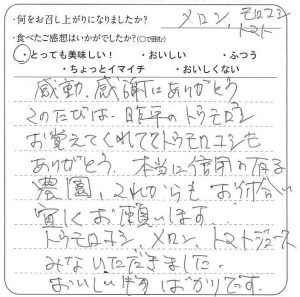 ・何をお召し上がりになりましたか？ メロン、モロコシ
トマト
・食べたご感想はいかがでしたか？（○で囲む）
・とっても美味しい！ ・おいしい ・ふつう
・ちょっとイマイチ ・おいしくない
感動、感謝にありがとう
このたびは、昨年のトウモロコシ
お覚えてくれててトウモロコシも
ありがとう、本当に信用の有る
農園、これからもお付合い
宜しくお願いします。
トウモロコシ、メロン、トマトジュース
みないただきました。
おいしい物ばかりです。